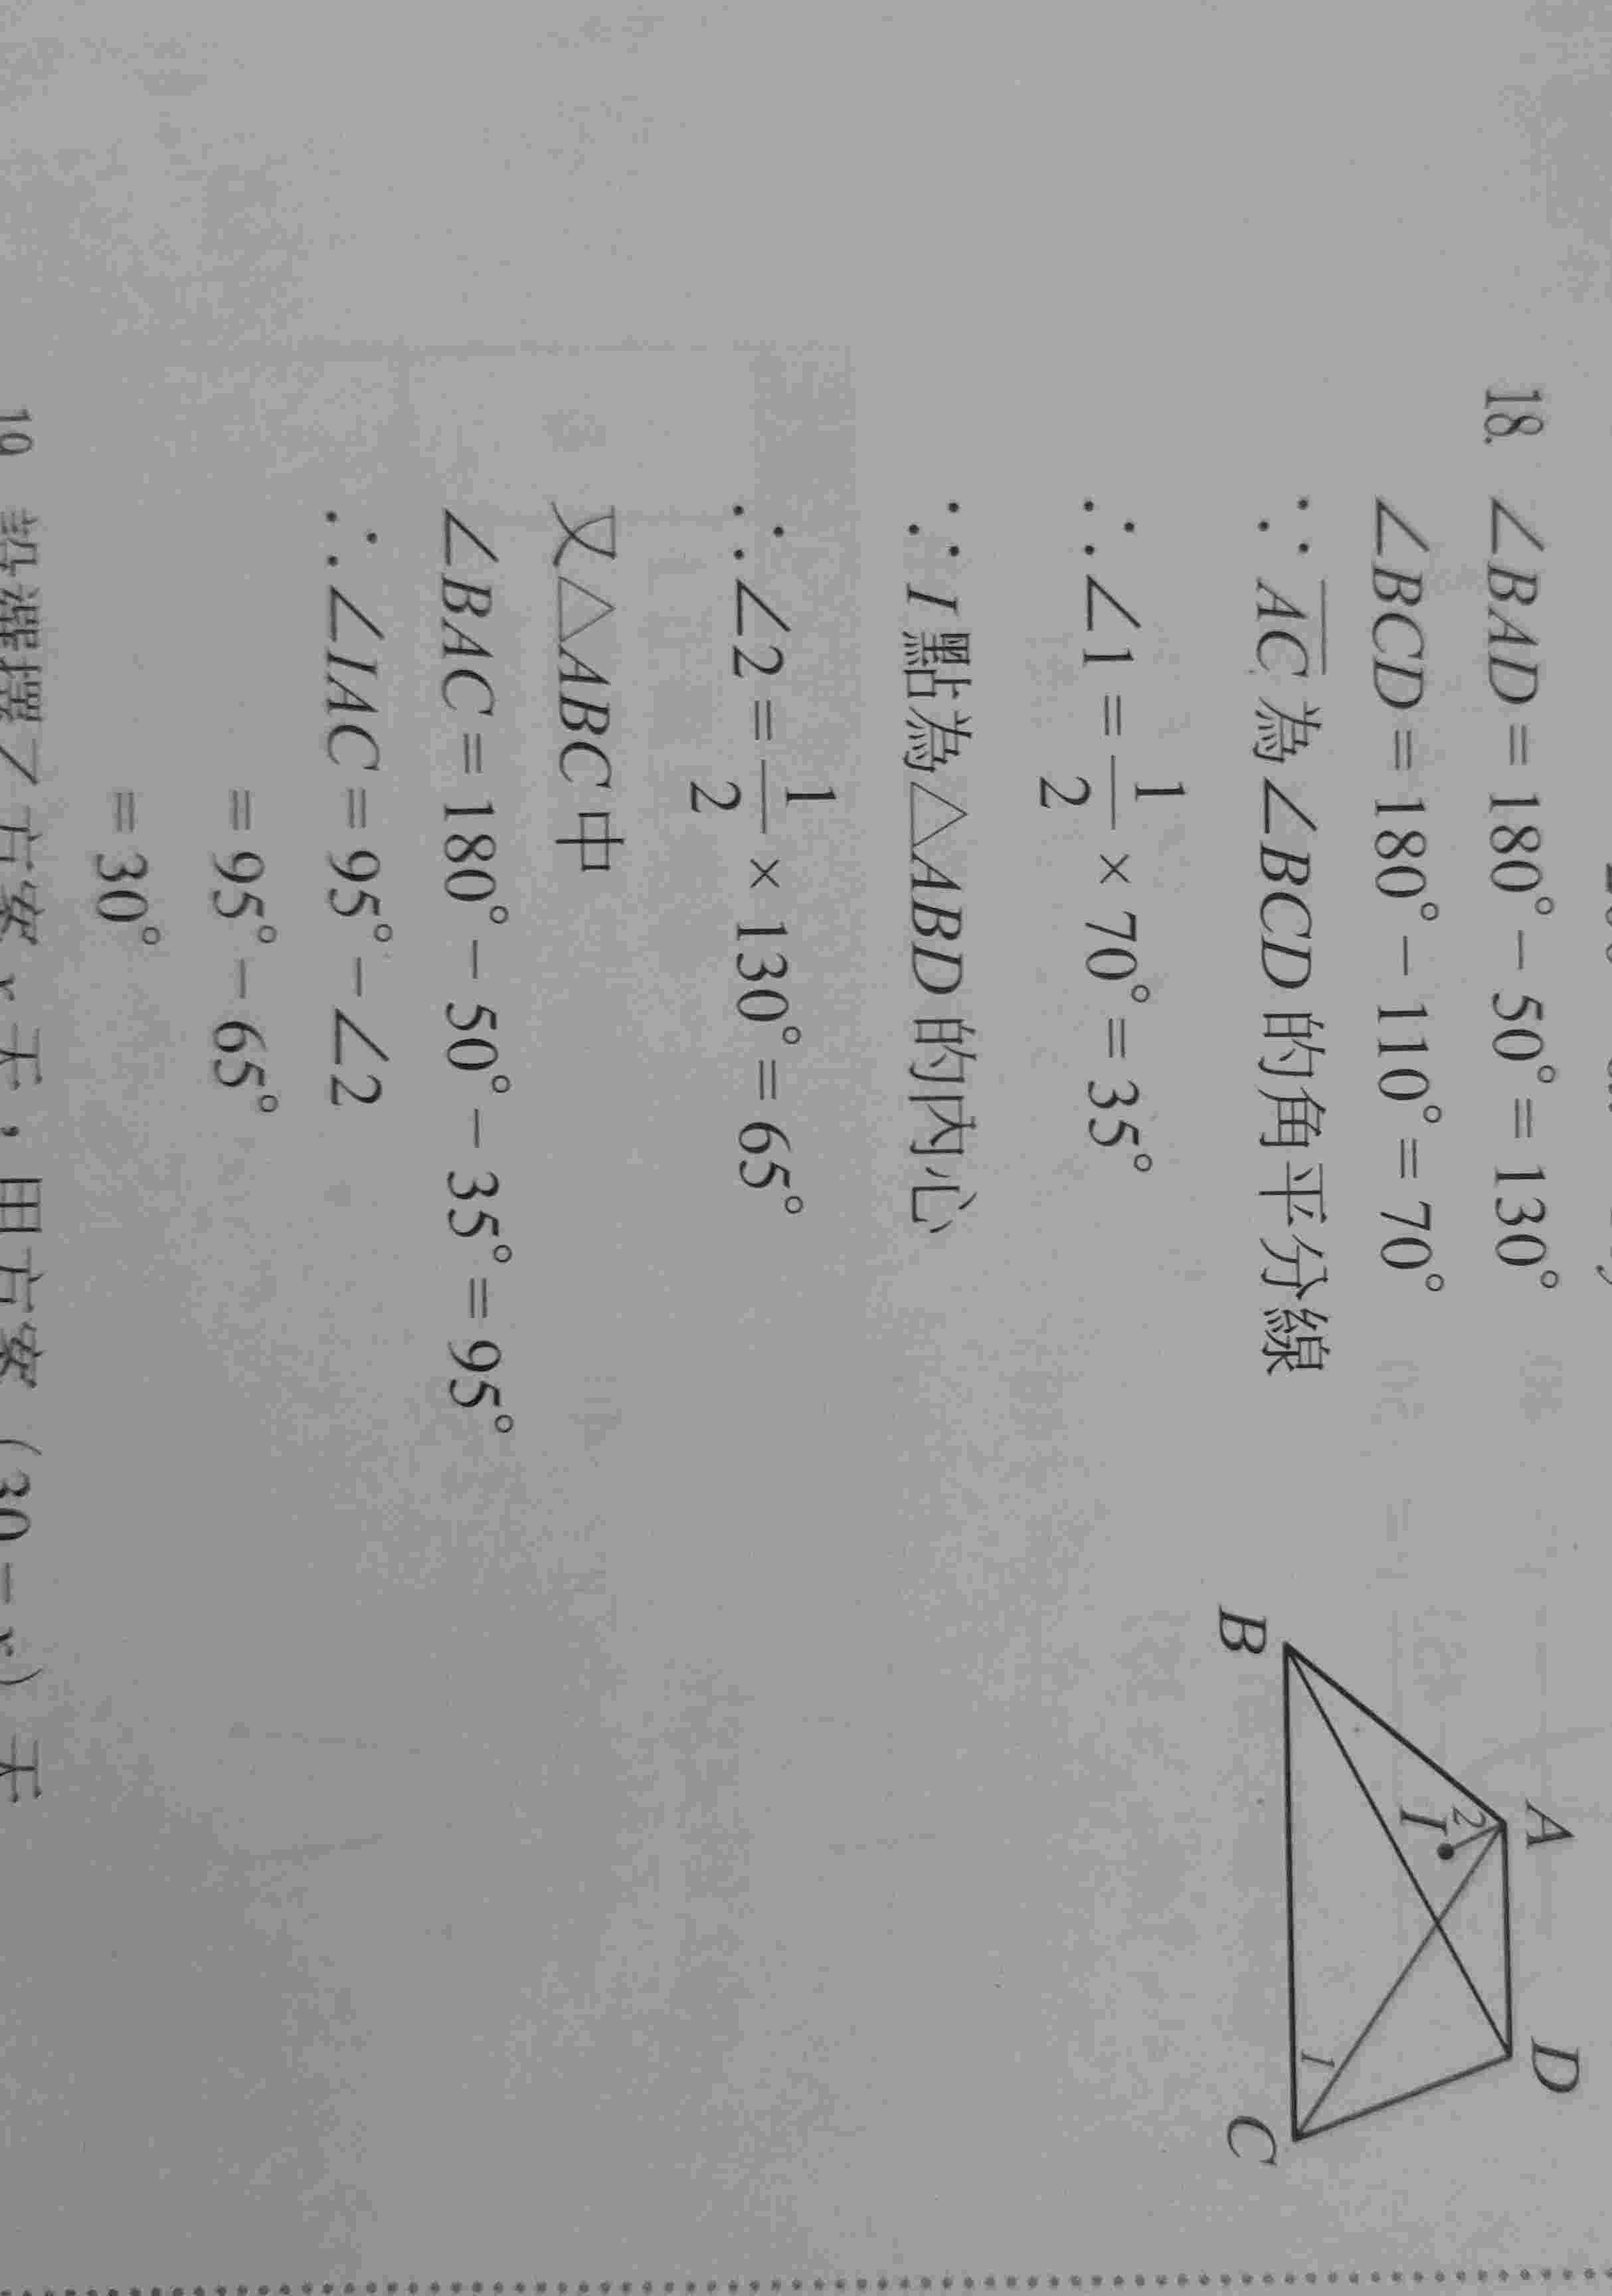 18. ∠BAD = 180° − 50° = 130°
∠BCD = 180° − 110° = 70°
∵ AC 為∠BCD 的角平分線
∴ ∠1 = 1/2 × 70° = 35°
∵ I 點為△ABD 的內心
∴ ∠2 = 1/2 × 130° = 65°
又△ABC 中
∠BAC = 180° − 50° − 35° = 95°
∴ ∠IAC = 95° − ∠2
= 95° − 65°
= 30°
A
D
2
I
1
B
C
天，甲方案 (30 − x) 天